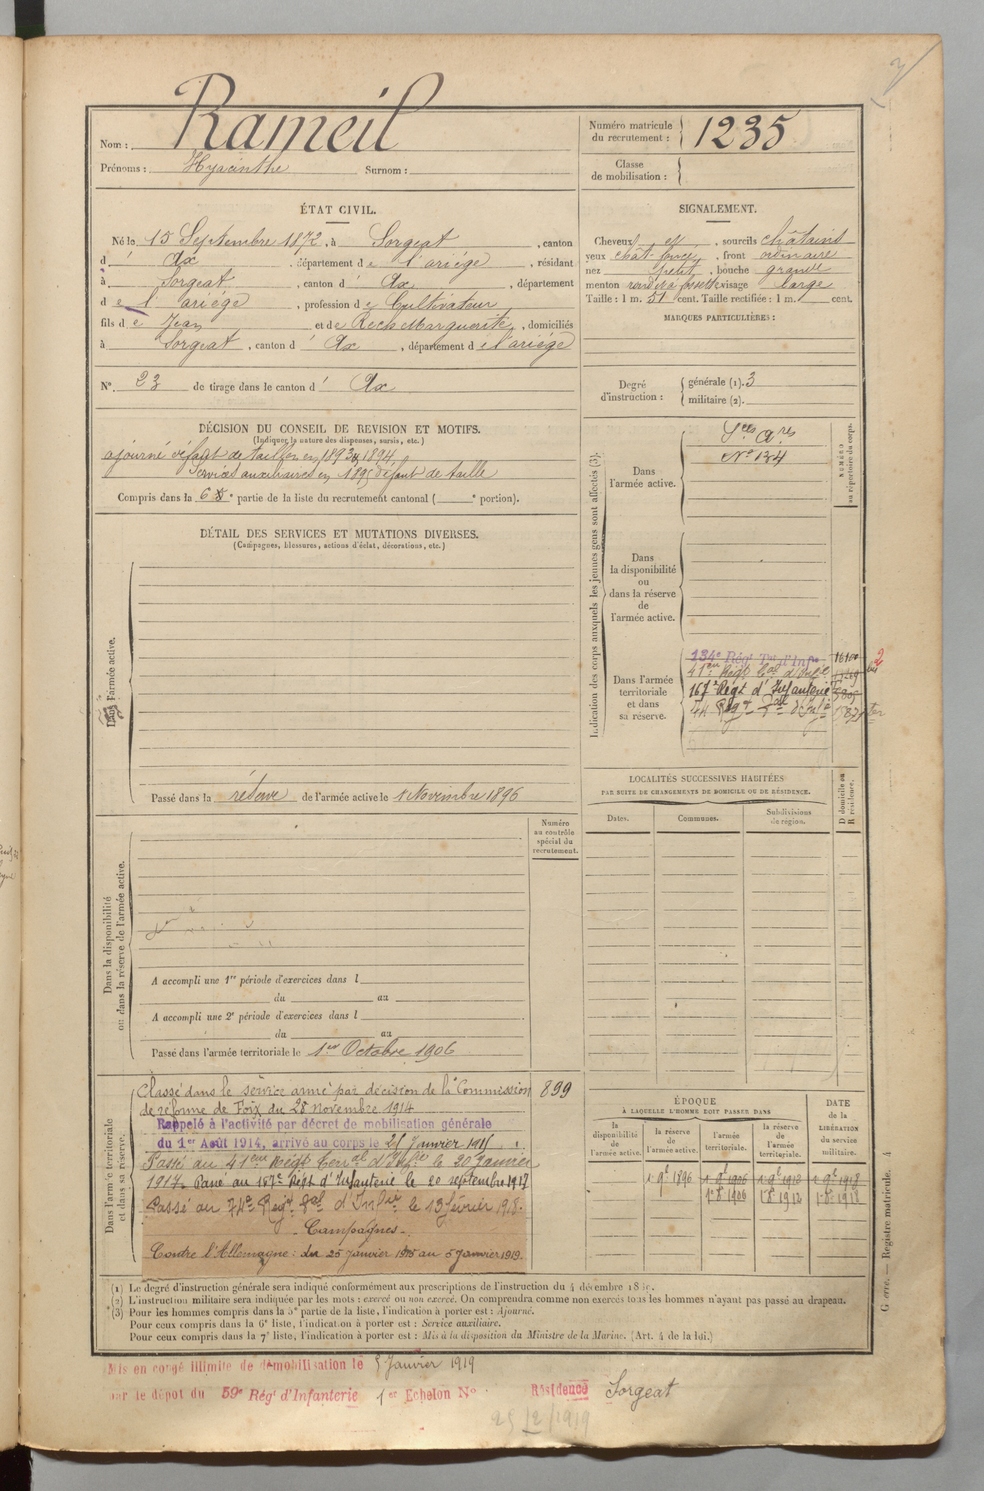 Nom : Rameil
Prénoms : Hyacinthe Surnom :
Numéro matricule du recrutement : 1235
Classe de mobilisation :
ÉTAT CIVIL.
Né le 15 Septembre 1872, à Sorgeat, canton
d' Ax, département de l'ariége, résidant
à Sorgeat, canton d' Ax, département
de l'ariége, profession de Cultivateur
fils de Jean et de Rech Marguerite, domiciliés
à Sorgeat, canton d' Ax, département de l'ariége
N° 23 de tirage dans le canton d' Ax
SIGNALEMENT.
Cheveux et, sourcils châtains
yeux chât. foncé, front ordinaire
nez petit, bouche grande
menton rond à fossette visage large
Taille : 1 m. 51 cent. Taille rectifiée : 1 m. cent.
MARQUES PARTICULIÈRES :
Degré d'instruction : générale (1). 3
militaire (2).
DÉCISION DU CONSEIL DE REVISION ET MOTIFS.
(Indiquer la nature des dispenses, sursis, etc.)
ajourné défaut de taille en 1893 & 1894
Services auxiliaires en 1895 défaut de taille
Compris dans la 6e partie de la liste du recrutement cantonal ( e portion).
DÉTAIL DES SERVICES ET MUTATIONS DIVERSES.
(Campagnes, blessures, actions d'éclat, décorations, etc.)
Dans l'armée active.
Passé dans la réserve de l'armée active le 1 Novembre 1896
Indication des corps auxquels les jeunes gens sont affectés (3).
NUMÉRO au répertoire du corps.
Dans l'armée active.
Sces Ares
N° 134
Dans la disponibilité ou dans la réserve de l'armée active.
Dans l'armée territoriale et dans sa réserve.
134e Régt Tal d'Infie
167e Régt d'Infanterie
LOCALITÉS SUCCESSIVES HABITÉES
PAR SUITE DE CHANGEMENTS DE DOMICILE OU DE RÉSIDENCE.
Dates. Communes. Subdivisions de région. D domicile ou R résidence.
Dans la disponibilité ou dans la réserve de l'armée active.
Numéro au contrôle spécial du recrutement.
A accompli une 1re période d'exercices dans l
du au
A accompli une 2e période d'exercices dans l
du au
Passé dans l'armée territoriale le 1er Octobre 1906
Dans l'armée territoriale et dans sa réserve.
Classé dans le service armé par décision de la Commission 899
de réforme de Foix du 28 novembre 1914
Rappelé à l'activité par décret de mobilisation générale
du 1er Août 1914, arrivé au corps le 25 Janvier 1915.
Passé au 41eme Régt le 20 Janvier
1917. Passé au 167e Régt d'Infanterie le 20 septembre 1917
Passé au 74e Régt Tal d'Infrie le 13 février 1918.
Campagnes
Contre l'Allemagne : du 25 Janvier 1915 au 5 Janvier 1919.
ÉPOQUE
À LAQUELLE L'HOMME DOIT PASSER DANS
la disponibilité de l'armée active. la réserve de l'armée active. l'armée territoriale. la réserve de l'armée territoriale. DATE de la LIBÉRATION du service militaire.
(1) Le degré d'instruction générale sera indiqué conformément aux prescriptions de l'instruction du 4 décembre
(2) L'instruction militaire sera indiquée par les mots : exercé ou non exercé. On comprendra comme non exercés tous les hommes n'ayant pas passé au drapeau.
(3) Pour les hommes compris dans la 5e partie de la liste, l'indication à porter est : Ajourné.
Pour ceux compris dans la 6e liste, l'indication à porter est : Service auxiliaire.
Pour ceux compris dans la 7e liste, l'indication à porter est : Mis à la disposition du Ministre de la Marine. (Art. 4 de la loi.)
Registre matricule. 4
Mis en congé illimité de démobilisation le 5 Janvier 1919
par le dépôt du 59e Régt d'Infanterie 1er Echelon N° Résidence Sorgeat